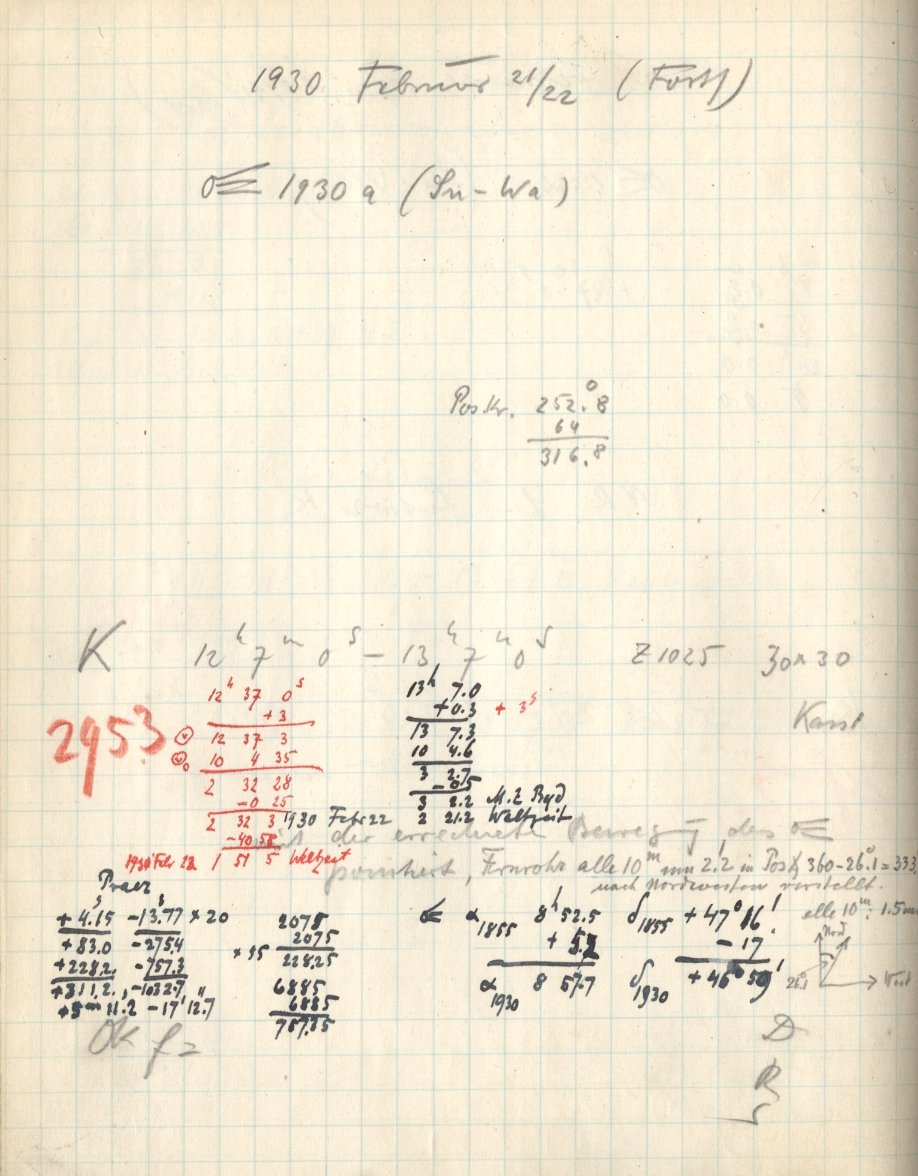 1930 Februar 21/22 (Forts)
1930 a (Su-Wa)
Pos.Kr. 252.°8
64
316.8
K 12ʰ 7ᵐ 0ˢ – 13ʰ 7ᵐ 0ˢ Z 1025 30×30
12ʰ 37 0ˢ
+3
12 37 3
10 4 35
2 32 28
-0 25
2 32 3
-40 58
1930 Febr 22 1 51 5 Weltzeit
2953
13ʰ 7.0
+0.3 + 3ˢ
13 7.3
10 4.6
3 2.7
-0.5
3 2.2 M.Z Byd
1930 Febr 22 2 21.2 Weltzeit
der errechneten Bewegung des
pointiert, Fernrohr alle 10ᵐ um 2.'2 in Pos 360-26.°1=333.
nach Nordwesten verstellt.
Praez
+4.15 -13.77 × 20
+83.0 -275.4
+228.2 -757.3
+311.2 -1032.7
+5ᵐ 11.2 -17' 12.7"
2075
× 95 2075
228.25
6885
6885
757.35
α1855 8ʰ 52.5 δ1855 +47° 16'
+ 5.2 - 17
α1930 8 57.7 δ1930 +46° 59'
alle 10ᵐ: 1.5mm
Nord
26.1
West
D
R